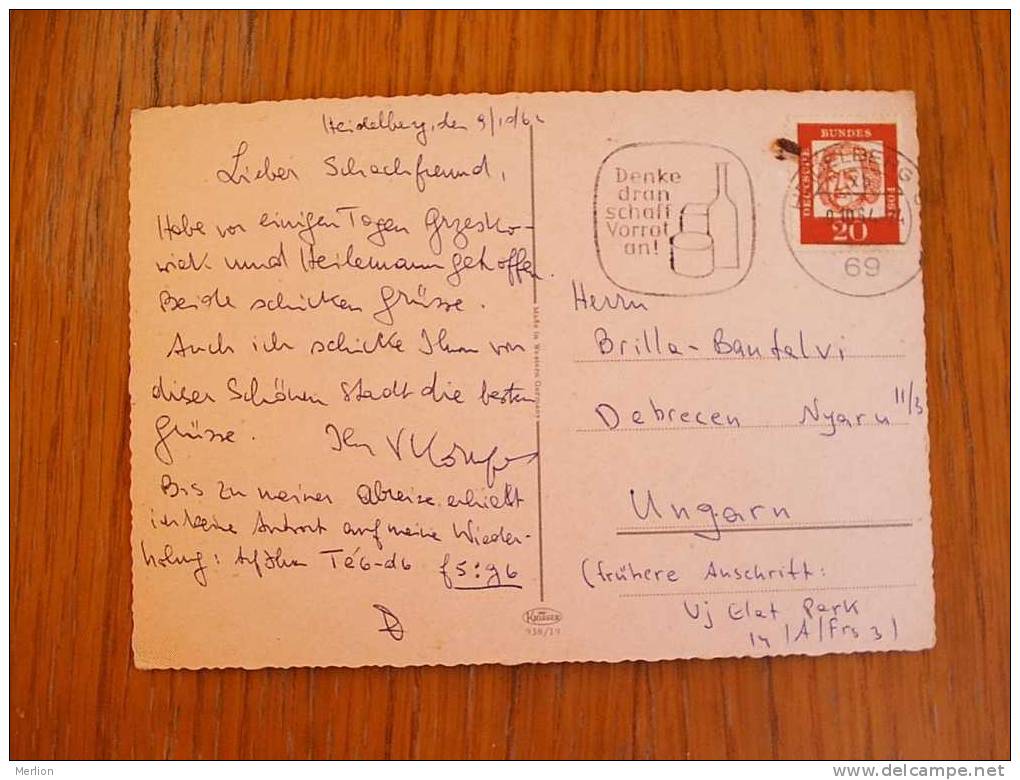 Heidelberg, den 9/10/6
Lieber Schachfreund,
Habe vor einigen Tagen Grzesko-
wiak und Heilemann getroffen.
Beide schicken Grüsse.
Auch ich schicke Ihnen von
dieser Schönen Stadt die besten
Grüsse. Ihr
Bis zu meiner Abreise erhielt
ich keine Antwort auf meine Wieder-
holung: Auf Ihren Te6-d6 f5:g6
Made in Western Germany
KRÜGER
938/19
Denke
dran
schaff
Vorrat
an!
DEUTSCHE
BUNDES
POST
20
HEIDELBERG
69
Herrn
Brilla-Banfalvi
Debrecen Nyaru 11/3
Ungarn
(frühere Anschrift:
Uj Elet Park
14/A/Frs 3)
Merlion
delcampe.net